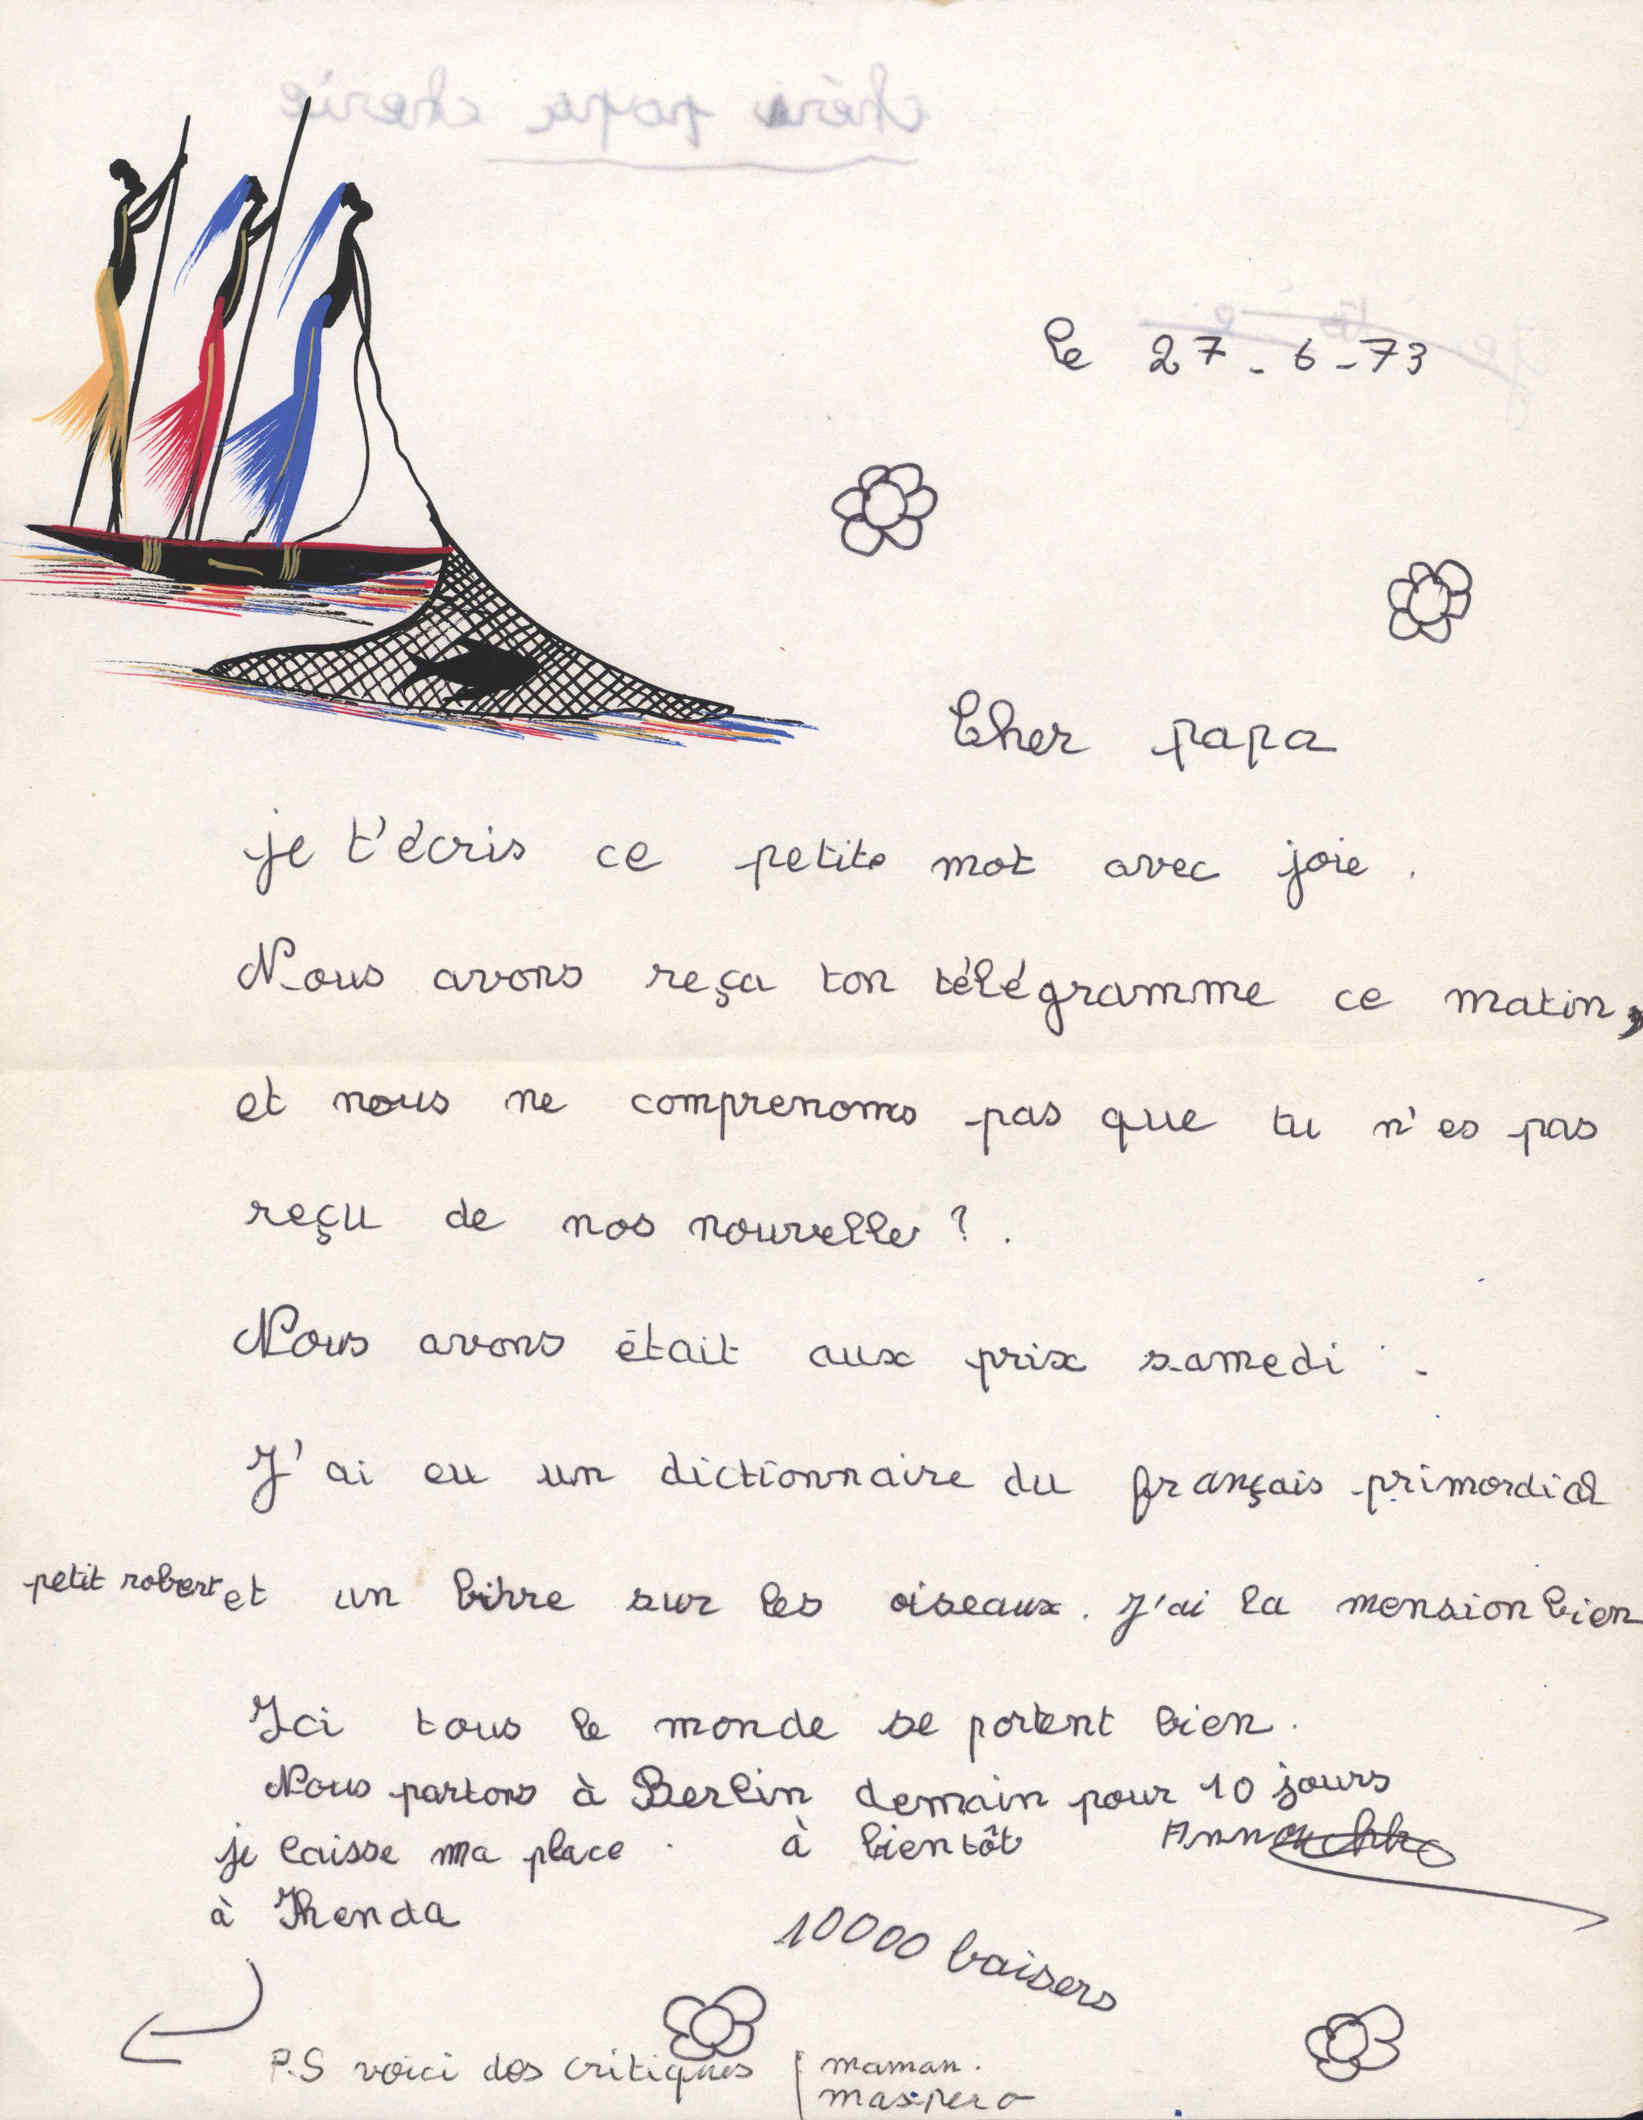 le 27-6-73
Cher papa
je t'écris ce petite mot avec joie.
Nous avons reça ton télégramme ce matin,
et nous ne comprenons pas que tu n'es pas
reçu de nos nouvelle ? .
Nous avons était aux prix samedi .
J'ai eu un dictionnaire du français primordial
petit robert et un livre sur les oiseaux. J'ai la mension bien
Ici tous le monde se portent bien.
Nous partons à Berlin demain pour 10 jours
je laisse ma place . à bientôt
à Khenda
10000 baisers
P.S voici des critiques maman.
maspero